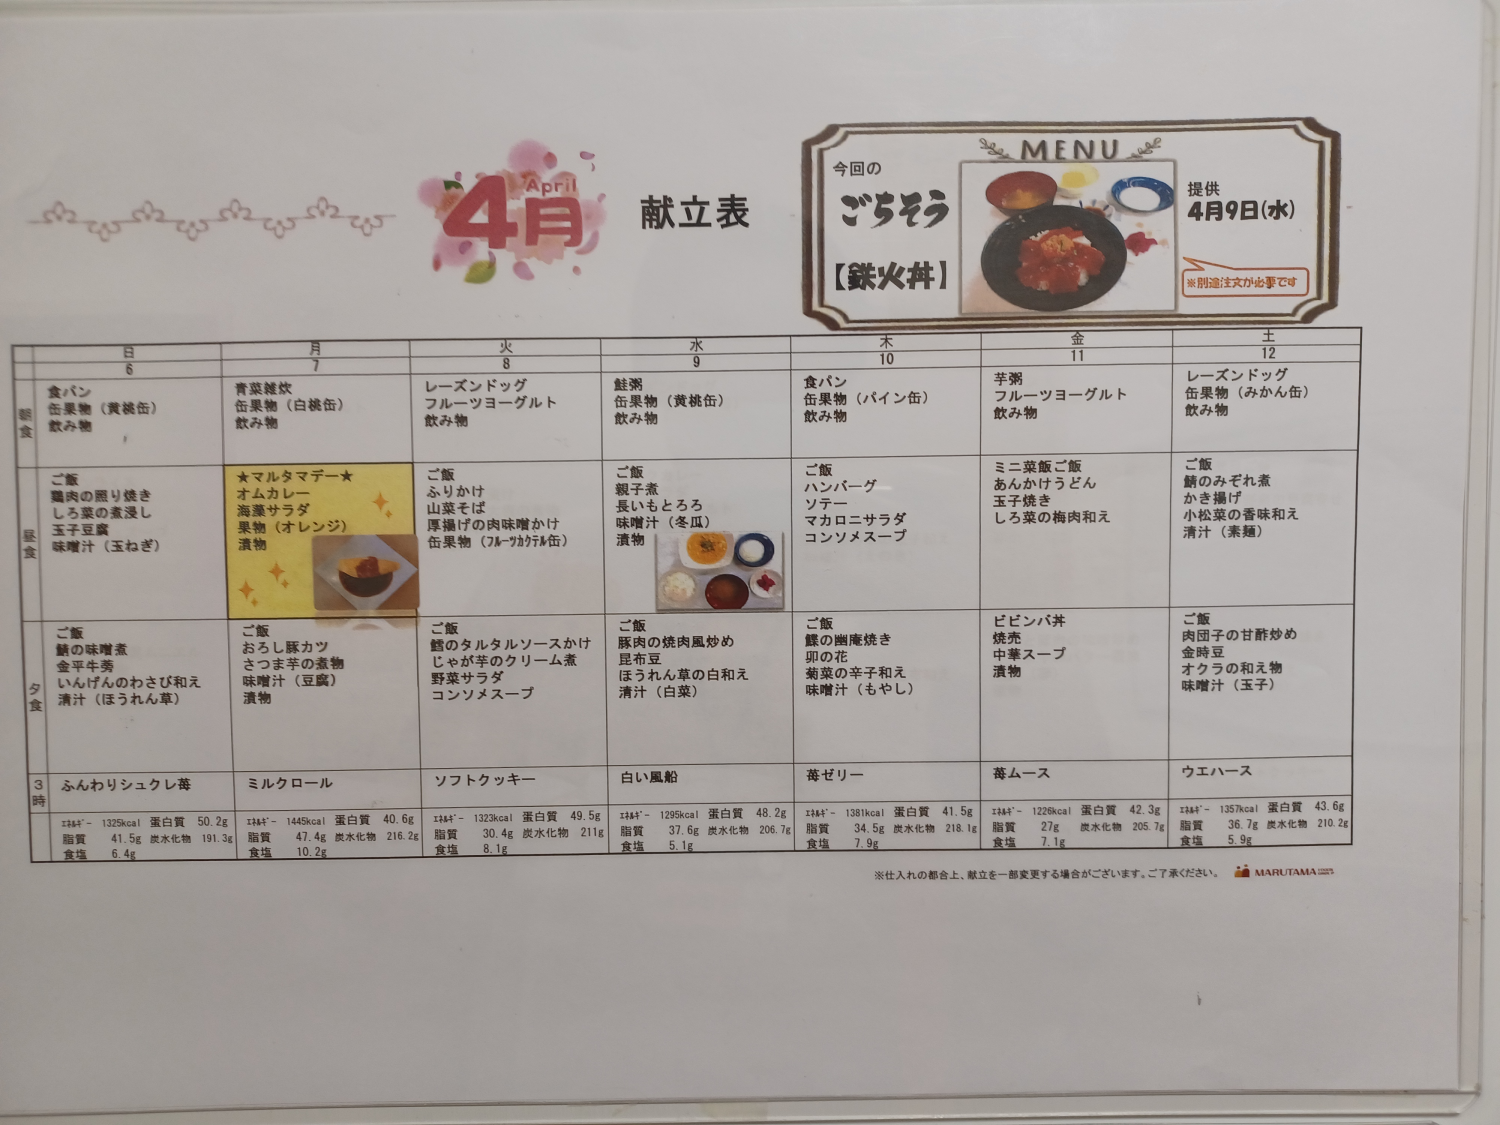 April
4月
献立表
MENU
今回の
ごちそう
【鉄火丼】
提供
4月9日(水)
※別途注文が必要です
日 月 火 水 木 金 土
6 7 8 9 10 11 12
朝食
食パン
缶果物（黄桃缶）
飲み物
青菜雑炊
缶果物（白桃缶）
飲み物
レーズンドッグ
フルーツヨーグルト
飲み物
鮭粥
缶果物（黄桃缶）
飲み物
食パン
缶果物（パイン缶）
飲み物
芋粥
フルーツヨーグルト
飲み物
レーズンドッグ
缶果物（みかん缶）
飲み物
昼食
ご飯
鶏肉の照り焼き
しろ菜の煮浸し
玉子豆腐
味噌汁（玉ねぎ）
★マルタマデー★
オムカレー
海藻サラダ
果物（オレンジ）
漬物
ご飯
ふりかけ
山菜そば
厚揚げの肉味噌かけ
缶果物（ﾌﾙｰﾂｶｸﾃﾙ缶）
ご飯
親子煮
長いもとろろ
味噌汁（冬瓜）
漬物
ご飯
ハンバーグ
ソテー
マカロニサラダ
コンソメスープ
ミニ菜飯ご飯
あんかけうどん
玉子焼き
しろ菜の梅肉和え
ご飯
鯖のみぞれ煮
かき揚げ
小松菜の香味和え
清汁（素麺）
夕食
ご飯
鯖の味噌煮
金平牛蒡
いんげんのわさび和え
清汁（ほうれん草）
ご飯
おろし豚カツ
さつま芋の煮物
味噌汁（豆腐）
漬物
ご飯
鱈のタルタルソースかけ
じゃが芋のクリーム煮
野菜サラダ
コンソメスープ
ご飯
豚肉の焼肉風炒め
昆布豆
ほうれん草の白和え
清汁（白菜）
ご飯
鰈の幽庵焼き
卯の花
菊菜の辛子和え
味噌汁（もやし）
ビビンバ丼
焼売
中華スープ
漬物
ご飯
肉団子の甘酢炒め
金時豆
オクラの和え物
味噌汁（玉子）
3時
ふんわりシュクレ苺
ミルクロール
ソフトクッキー
白い風船
苺ゼリー
苺ムース
ウエハース
ｴﾈﾙｷﾞｰ 1325kcal 蛋白質 50.2g
脂質 41.5g 炭水化物 191.3g
食塩 6.4g
ｴﾈﾙｷﾞｰ 1445kcal 蛋白質 40.6g
脂質 47.4g 炭水化物 216.2g
食塩 10.2g
ｴﾈﾙｷﾞｰ 1323kcal 蛋白質 49.5g
脂質 30.4g 炭水化物 211g
食塩 8.1g
ｴﾈﾙｷﾞｰ 1295kcal 蛋白質 48.2g
脂質 37.6g 炭水化物 206.7g
食塩 5.1g
ｴﾈﾙｷﾞｰ 1381kcal 蛋白質 41.5g
脂質 34.5g 炭水化物 218.1g
食塩 7.9g
ｴﾈﾙｷﾞｰ 1226kcal 蛋白質 42.3g
脂質 27g 炭水化物 205.7g
食塩 7.1g
ｴﾈﾙｷﾞｰ 1357kcal 蛋白質 43.6g
脂質 36.7g 炭水化物 210.2g
食塩 5.9g
※仕入れの都合上、献立を一部変更する場合がございます。ご了承ください。
MARUTAMA